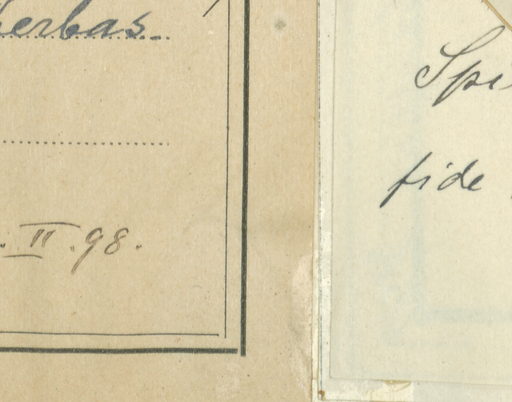 herbas.
. II. 98.
Spi
fide